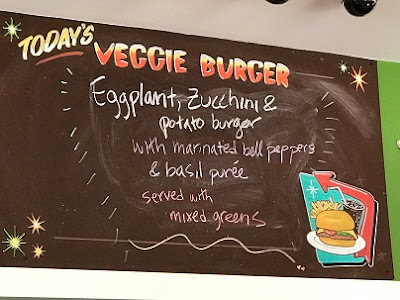 TODAY'S
VEGGIE BURGER
Eggplant, Zucchini &
potato burger
with marinated bell peppers
& basil purée
served with
mixed greens